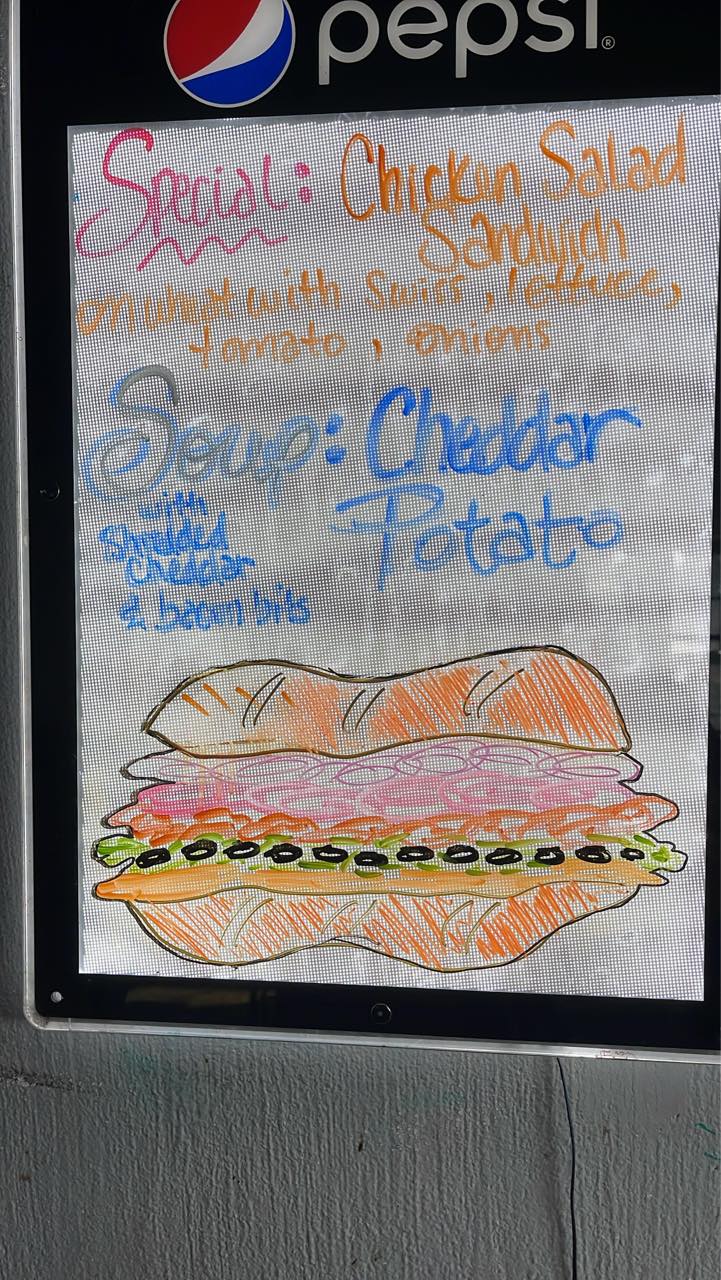 pepsi®
Special: Chicken Salad
Sandwich
on wheat with Swiss, lettuce,
tomato, onions
Soup: Cheddar
Potato
with
Shredded
Cheddar
& bacon bits